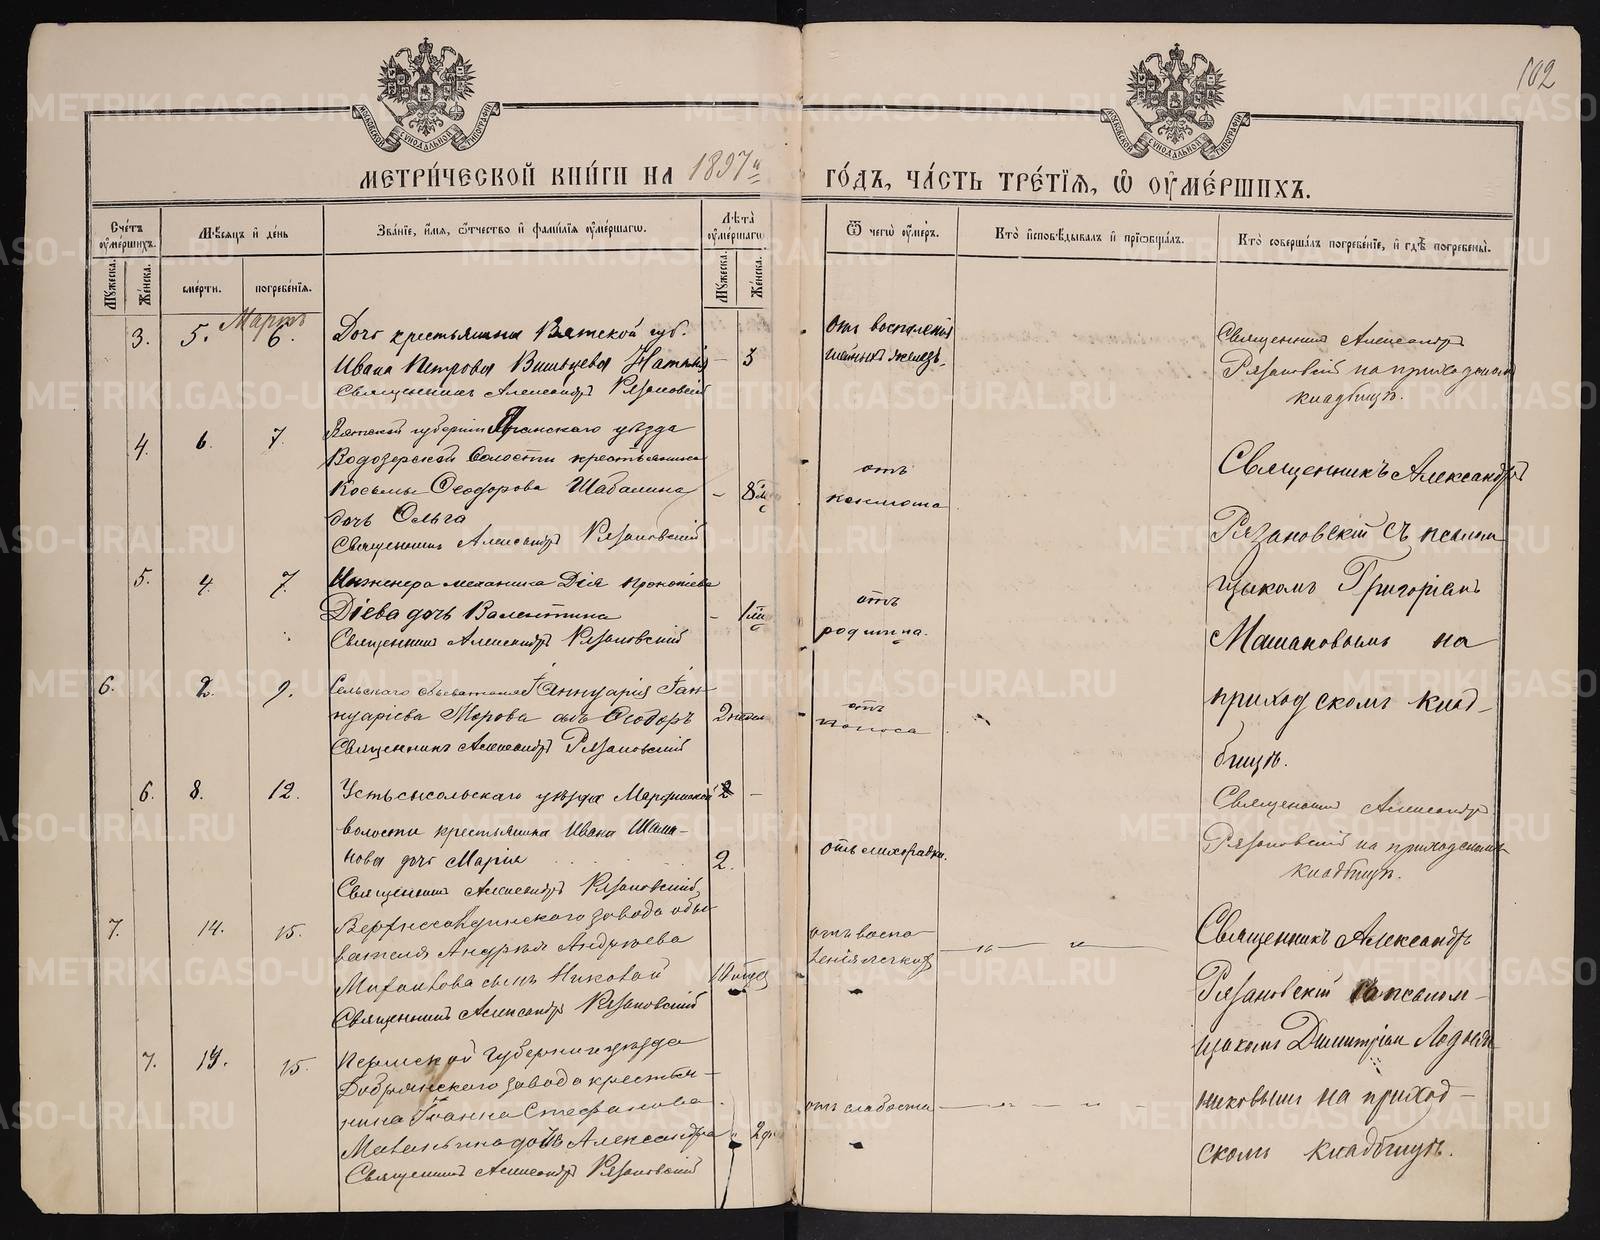 102
МОСКОВСКОЙ СѴНОДАЛЬНОЙ ТИПОГРАФІИ
МОСКОВСКОЙ СѴНОДАЛЬНОЙ ТИПОГРАФІИ
МЕТРИ́ЧЕСКОЙ КНИ́ГИ НА 1897й ГО́ДЪ, ЧА́СТЬ ТРЕ́ТІѦ, Ѡ ОУ҆МЕ́РШИХЪ.
Сче́тъ оу҆ме́ршихъ.
Мꙋжеска.
Же́нска.
Мѣ́сѧцъ и҆ де́нь
сме́рти.
погребе́нїѧ.
Зва́нїе, и҆́мѧ, ѻ҆́тчество и҆ фами́лїѧ оу҆ме́ршагѡ.
Лѣ́та оу҆ме́ршагѡ
Мꙋжеска.
Же́нска.
Ѿ чегѡ̀ оу҆́меръ.
Кто̀ и҆сповѣ́дывалъ и҆ прїѡбща́лъ.
Кто̀ соверша́лъ погребе́нїе, и҆ гдѣ̀ погребены̀.
Мартъ
3. 5. 6.
Дочь крестьянина Вятской губ.
Ивана Петрова
— 3
Священникъ Александръ Рязановскій
отъ воспаленія
шейныхъ железъ.
Священникъ Александръ
Рязановскій на приходскомъ
кладбищѣ.
4. 6. 7.
Вятской губерніи Яранскаго уѣзда
Водозерской волости крестьянина
Косьмы Ѳеодорова Шабалина
дочь Ольга
— 8 м
Священникъ Александръ Рязановскій
отъ
коклюша
Священникъ Александръ
Рязановскій съ псалом
щикомъ Григоріемъ
на
приходскомъ клад-
бищѣ.
5. 4. 7.
Инженера механика Дія Прокопіева
Діева дочь Валентина
— 1
Священникъ Александръ Рязановскій
отъ
родимца.
6. 2. 9.
Сельскаго обывателя Іаннуарія Іан-
нуаріева Морова сынъ Ѳеодоръ
2 недѣли
Священникъ Александръ Рязановскій
отъ
поноса
6. 8. 12.
Устьсысольскаго уѣзда
волости крестьянина Ивана Шама-
нова дочь Марія
2.
Священникъ Александръ Рязановскій
отъ лихорадки.
Священникъ Александръ
Рязановскій на приходскомъ
кладбищѣ.
7. 14. 15.
Верхиссетскинскаго завода обы-
вателя Андрея Андреева
Михайлова сынъ Николай
10
Священникъ Александръ Рязановскій
отъ воспа-
ленія легкихъ
— „ — „ —
Священникъ Александръ
Рязановскій съ псалом-
щикомъ Димитріемъ
на приход-
скомъ кладбищѣ.
7. 14. 15.
Пермской губерніи и уѣзда
Добрянскаго завода крестья-
нина Іоанна Стефанова
дочь Александра
„ 2
Священникъ Александръ Рязановскій
отъ слабости
— „ — „ —